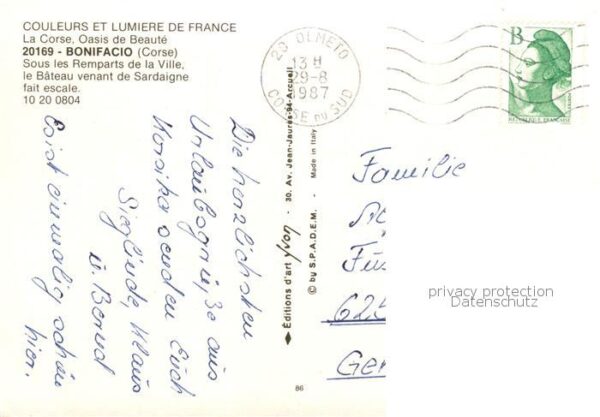 COULEURS ET LUMIERE DE FRANCE
La Corse, Oasis de Beauté
20169 - BONIFACIO (Corse)
Sous les Remparts de la Ville,
le Bâteau venant de Sardaigne
fait escale.
10 20 0804
Die herzlichsten
Urlaubsgrüße aus
Korsika senden Euch
Sieglinde, Klaus
u. Bernd
Es ist einmalig schön
hier.
Editions d'art yvon - 30. Av. Jean-Jaurès-94-Arcueil
© by S.P.A.D.E.M. - Made in Italy
86
20 OLMETO
13 H
29-8
1987
CORSE DU SUD
B
REPUBLIQUE FRANÇAISE
Familie
625
Ger
privacy protection
Datenschutz